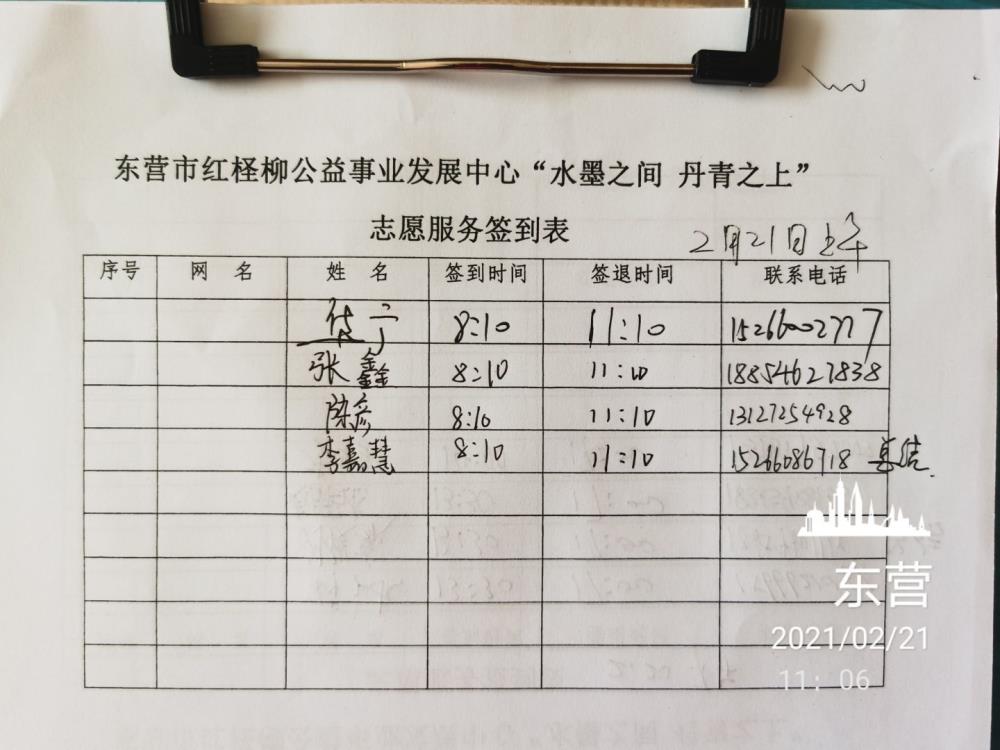 东营市红柽柳公益事业发展中心“水墨之间 丹青之上”
志愿服务签到表
2月21日上午
序号 网 名 姓 名 签到时间 签退时间 联系电话
8:10 11:10
张鑫 8:10 11:10 18854627838
陈彦 8:10 11:10 13127254928
李嘉慧 8:10 11:10 15266086718 总结
东营
2021/02/21
11: 06